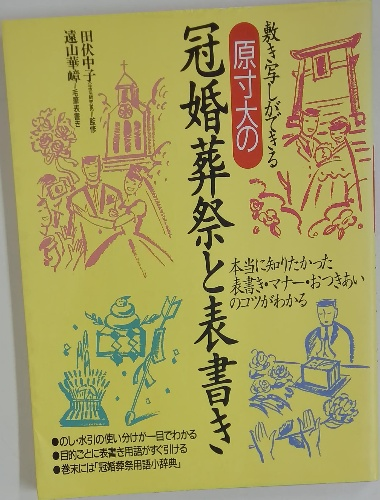 敷き写しができる
原寸大の
冠婚葬祭と表書き
田伏中子
監修
遠山華嶂
毛筆表書き
本当に知りたかった
表書き・マナー・おつきあい
のコツがわかる
●のし・水引の使い分けが一目でわかる
●目的ごとに表書き用語がすぐ引ける
●巻末には「冠婚葬祭用語小辞典」